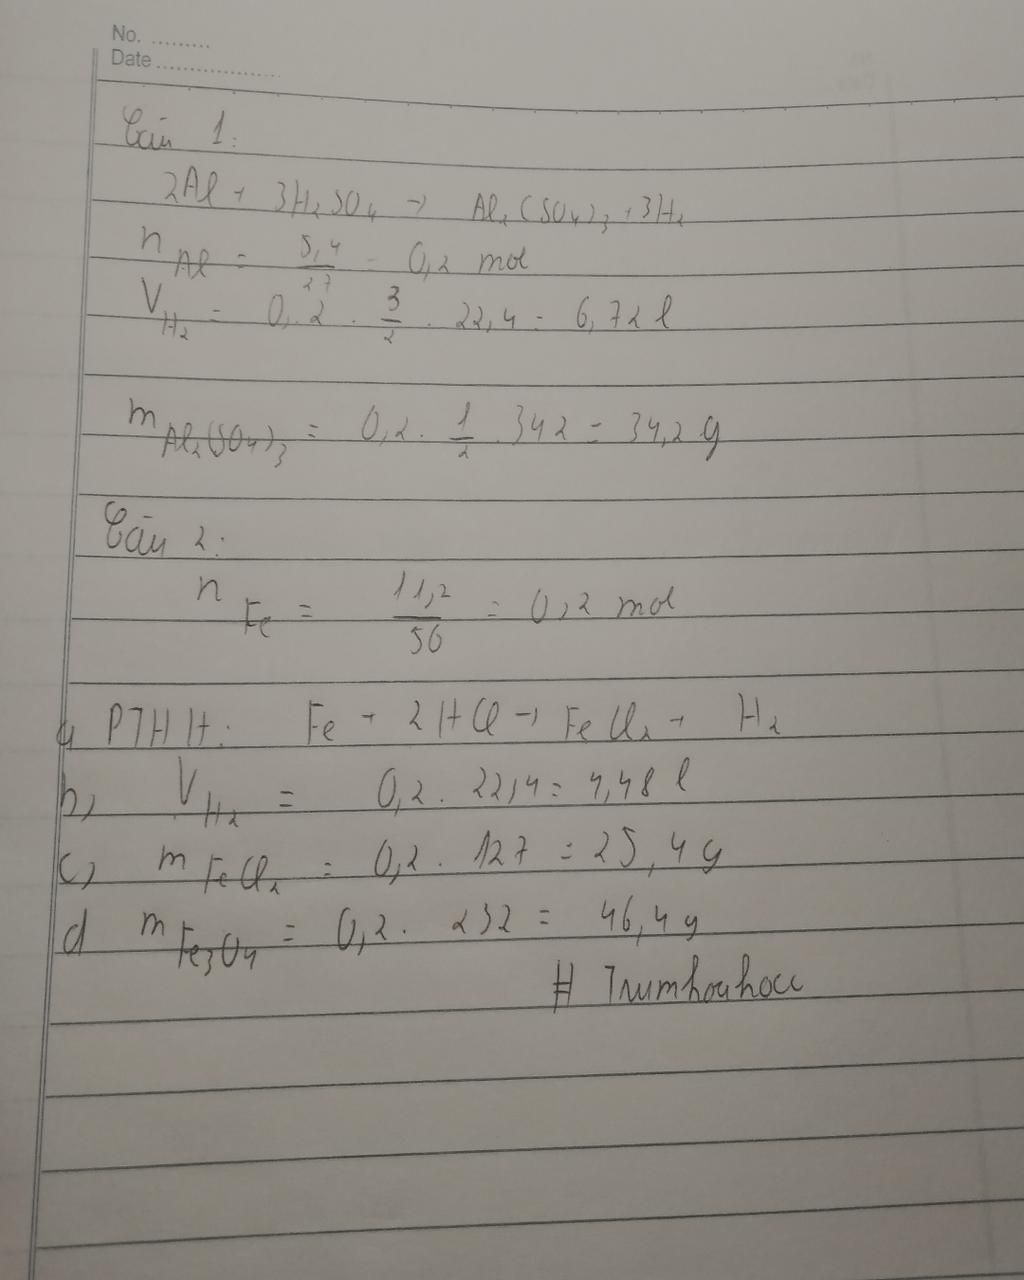 No. .........
Date ..................
Câu 1:
2Al + 3H₂SO₄ → Al₂(SO₄)₃ + 3H₂
n Al = 5,4/27 = 0,2 mol
V H₂ = 0,2 . 3/2 . 22,4 = 6,72 l
m Al₂(SO₄)₃ = 0,2 . 1/2 . 342 = 34,2 g
Câu 2:
n Fe = 11,2/56 = 0,2 mol
a, PTHH: Fe + 2HCl → FeCl₂ + H₂
b, V H₂ = 0,2 . 22,4 = 4,48 l
c, m FeCl₂ = 0,2 . 127 = 25,4 g
d m Fe₃O₄ = 0,2 . 232 = 46,4 g
# Trumhoahocc